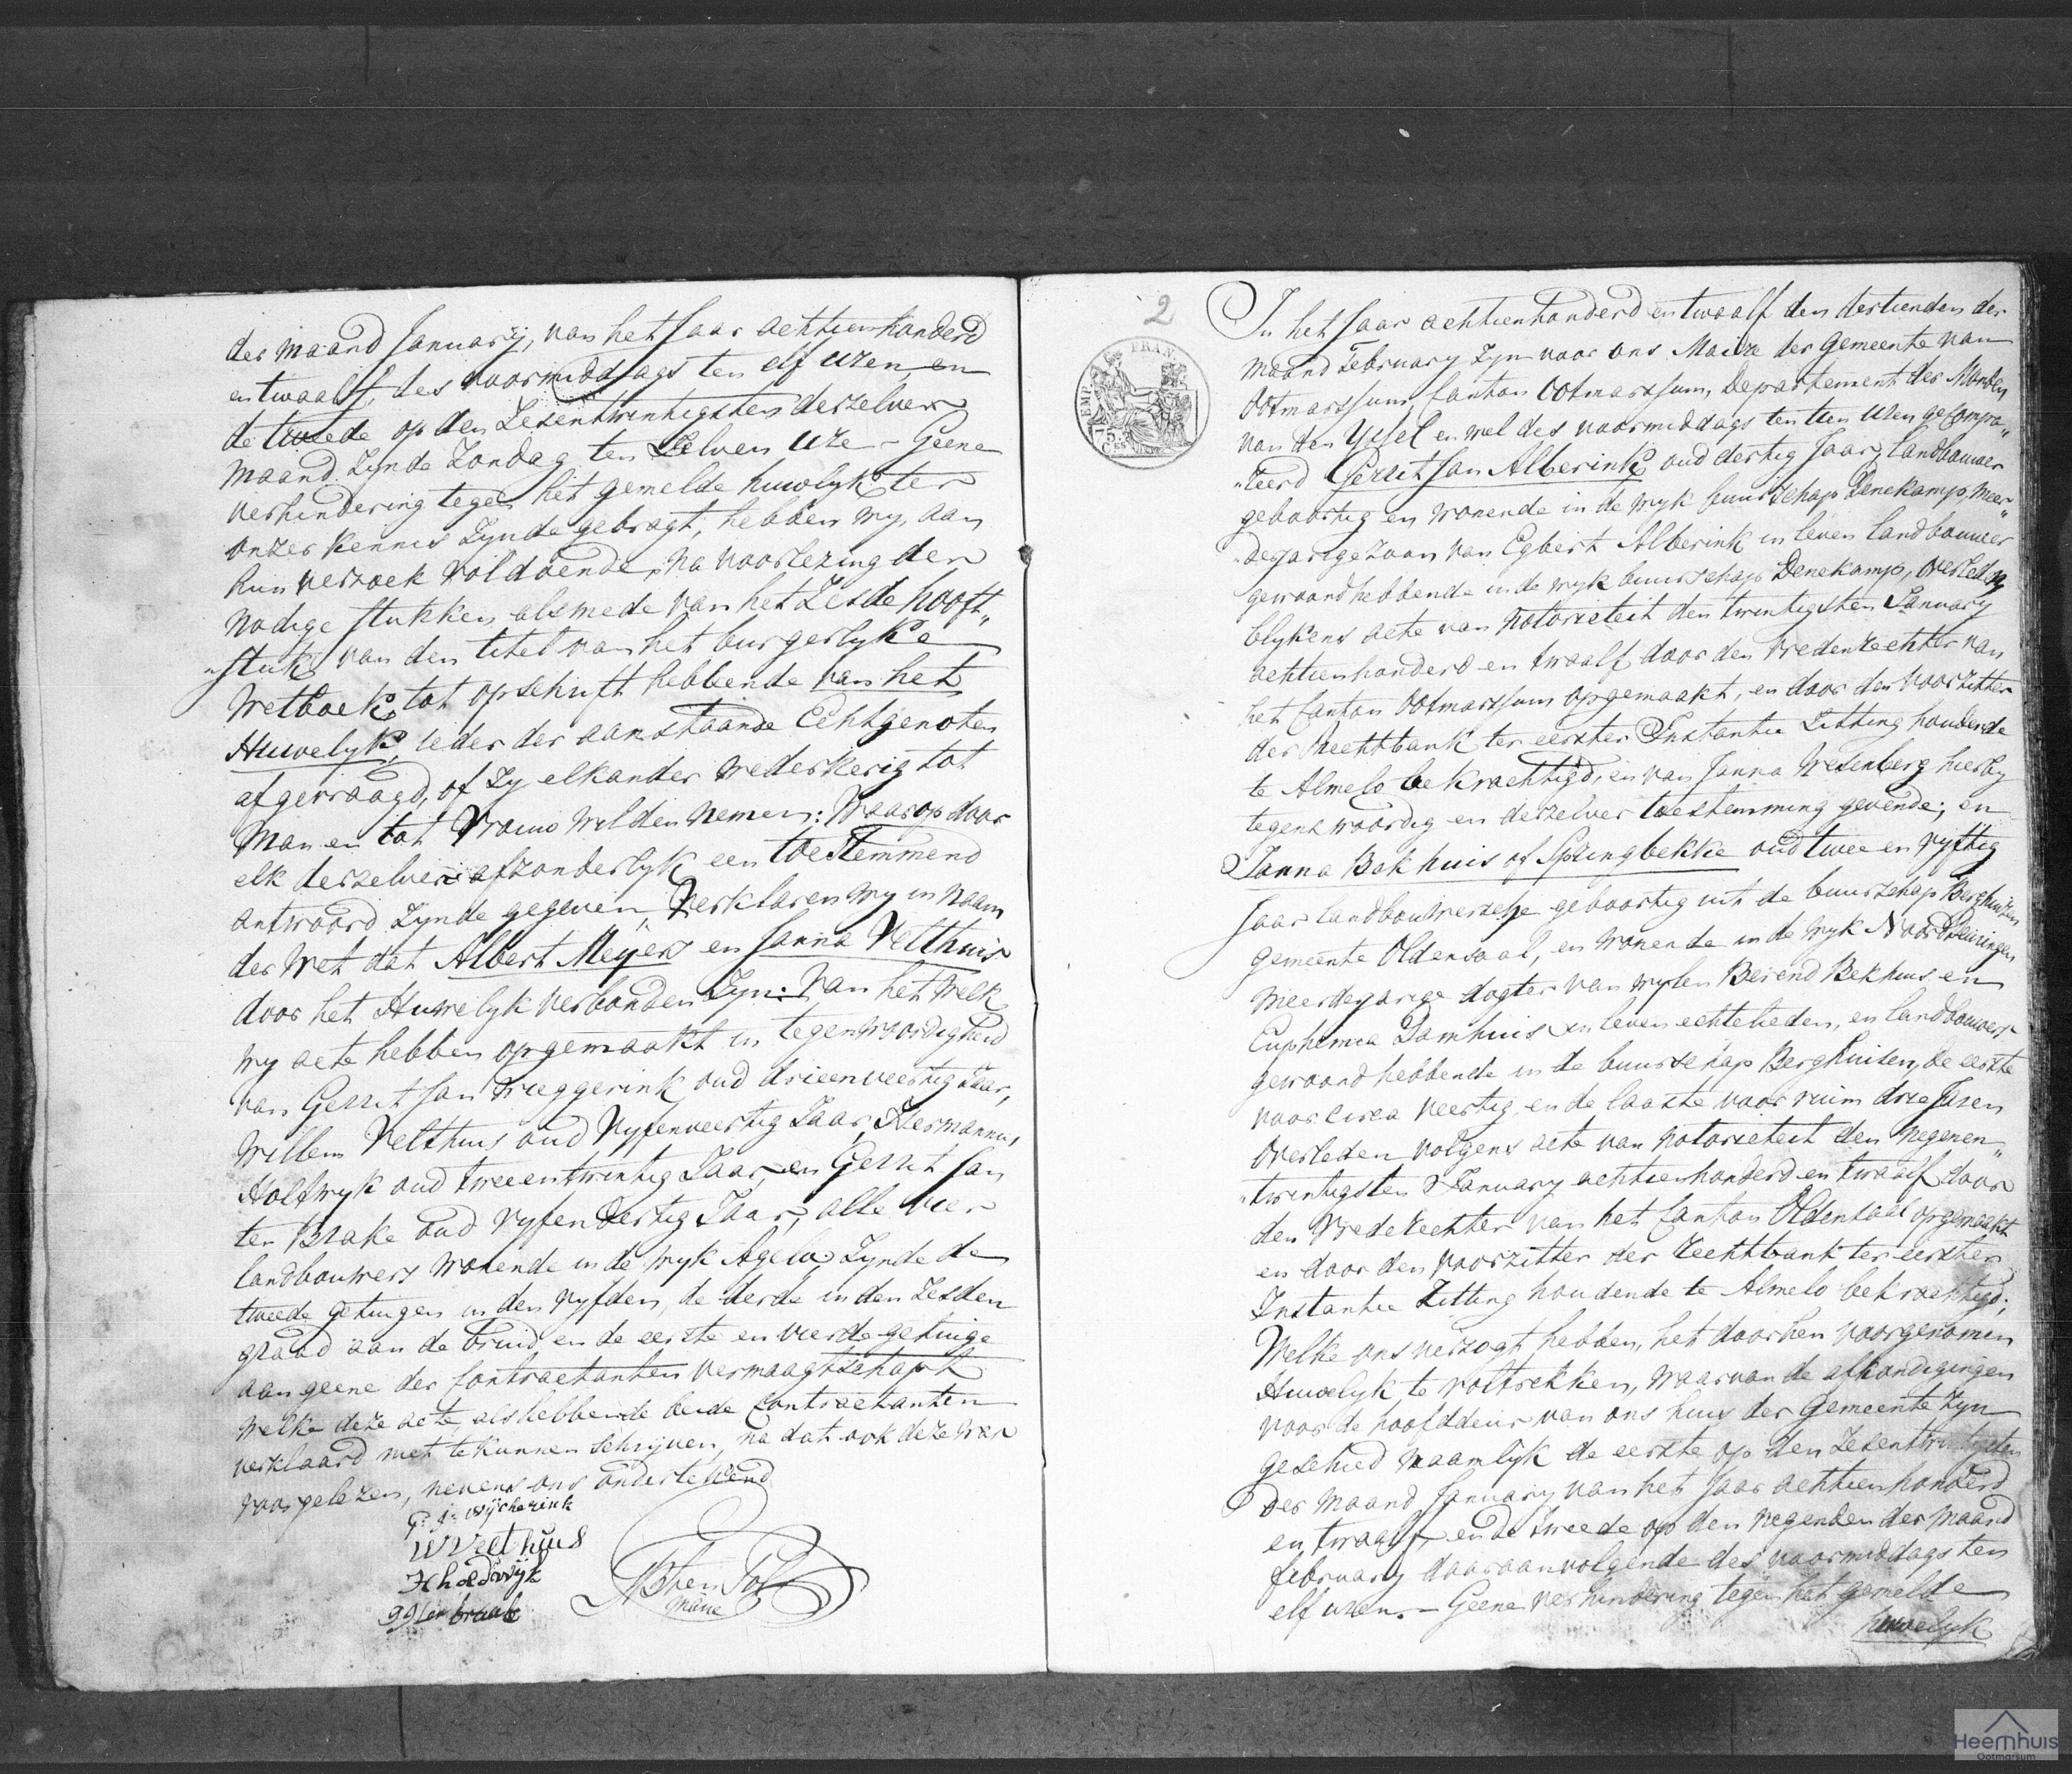 der maand January, van het Jaar achttienhonderd
en twaalf, des voormiddags ten elf uren en
de tweede op den Zesentwintigsten derzelver
maand Zynde Zondag ten Zelven ure - Geene
verhindering tegen het gemelde huwlyk ter
onzer kennis Zynde gebragt, hebben wy, aan
hun verzoek voldoende, na voorlezing der
nodige stukken alsmede van het Zesde hooft„
„stuk van den titel van het burgerlyke
Wetboek, tot opschrift hebbende van het
Huwelyk, ieder der aanstaande Echtgenoten
afgevraagd, of Zy elkander wederkerig tot
Man en tot Vrouw wilden nemen: Waarop door
elk derzelver afzonderlyk een toestemmend
antwoord Zynde gegeven, Verklaren wy in naam
der Wet dat Albert Meÿers en Janna Velthuis
door het Huwelyk verbonden Zyn: Van het welk
wy acte hebben opgemaakt in tegenwoordigheid
van Gerrit Jan oud drieenveertig Jaar,
Willem Velthuis oud Vyfenveertig Jaar, Hermannus
Holtwyk oud tweeentwintig Jaar, en Gerrit Jan
ten Brake oud vyfendertig Jaar, alle vier
landbouwers wonende in de wyk Agelo, Zynde de
tweede getuigen in den vyfden, de derde in den Zesden
graad aan de bruid en de eerste en vierde getuige
aan geene der Contractanten vermaagtschapt
welke deze acte, als hebbende beide Contractanten
verklaard niet te kunnen schrijven, na dat ook deze was
voorgelezen, nevens ons ondertekend
W Velthuis
H hoedwÿk
g g ter braak
Maire
2
EMP. FRAN.
75
In het Jaar achtienhonderd en twaalf den dertienden der
maand February Zyn voor ons Maire der Gemeente van
Ootmarssum Canton Ootmarssum, Departement der Monden
van den Yssel en wel des voormiddags ten tien uren gecompa„
„reerd Gerrit Jan Alberink oud dertig Jaar, landbouwer
geboortig en wonende in de wyk buurschap Denekamp, meer„
„derjarige Zoon van Egbert Alberink in leven landbouwer
gewoond hebbende in de wyk buurschap Denekamp, overleden
blykens acte van notorieteit den twintigsten January
achttienhonderd en twaalf door den vrederechter van
het Canton Ootmarssum opgemaakt, en door den Voorzitter
der Rechtbank ter eerster Instantie Zitting houdende
te Almelo bekrachtigd, en van Janna Wesenberg hierby
tegenswoordig en derzelver toestemming gevende; en
Janna Bekhuis of Springbekke oud twee en vyftig
Jaar landbouwersche geboortig uit de buurschap Berghuizen
gemeente Oldensaal, en wonende in de wyk Noorddeuringen
meerderjarige dogter van wylen Berend Bekhuis en
Euphemia Damhuis in leven echtelieden, en landbouwers
gewoond hebbende in de buurschap Berghuisen, de eerste
voor circa veertig, en de laatste voor ruim drie Jaren
Overleden volgens acte van notorieteit den negenen„
„twintigsten January achtienhonderd en twaalf door
den vrederechter van het Canton Oldensaal opgemaakt
en door den Voorzitter der Rechtbank ter eerster
Instantie Zitting houdende te Almelo bekrachtigd;
Welke ons verzogt hebben, het door hen voorgenomen
Huwelyk te voltrekken, waarvan de afkondigingen
voor de hoofddeur van ons huis der Gemeente Zyn
geschied naamlyk de eerste op den Zesentwintigsten
der maand January van het Jaar achttienhonderd
en twaalf, en de tweede op den negenden der maand
february daaraanvolgende des voormiddags ten
elf uren. - Geene verhindering tegen het gemelde
huwelyk
Heemhuis
Ootmarsum